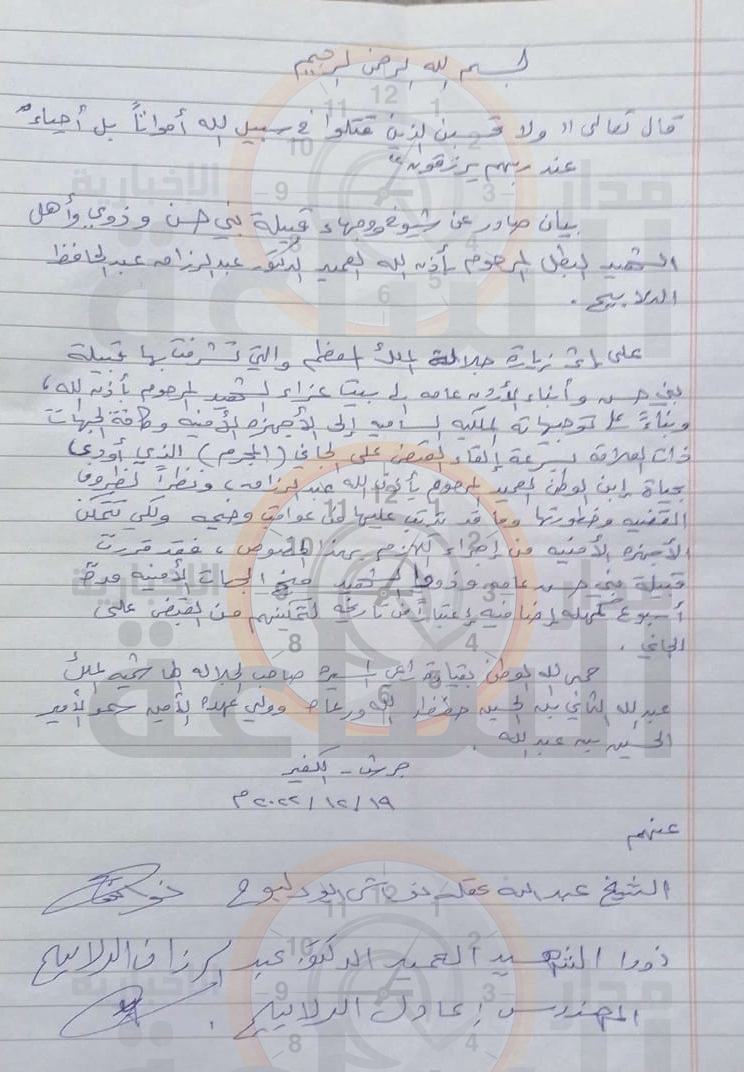 بسم الله الرحمن الرحيم
قال تعالى "ولا تحسبن الذين قتلوا في سبيل الله أمواتاً بل أحياء
عند ربهم يرزقون"
بيان صادر عن شيوخ ووجهاء قبيلة بني حسن وذوي وأهل
الشهيد البطل المرحوم بأذن الله العميد الدكتور عبدالرزاق عبدالحافظ
الدلابيح .
على إثر زيارة جلالة الملك المعظم والتي تشرفت بها قبيلة
بني حسن وأبناء الأردن عامه إلى بيت عزاء الشهيد المرحوم بأذن الله ،
وبناءً على توجيهاته الملكيه الساميه إلى الأجهزه الأمنيه وكافة الجهات
ذات العلاقة بسرعة إلقاء القبض على الجاني (المجرم) الذي أودى
بحياة إبن الوطن العميد المرحوم بأذن الله عبدالرزاق ، ونظراً لظروف
القضيه وخطورتها وما قد يترتب عليها من عواقب وخيمه ولكي تتمكن
الأجهزه الأمنيه من إجراء اللازم بهذا الخصوص ، فقد قررت
قبيلة بني حسن عامه وذوو الشهيد منح الجهات الأمنيه مدة
أسبوع كمهله إضافيه إعتباراً من تاريخه لتمكينهم من القبض على
الجاني .
حمى الله الوطن بقيادة راعي المسيره صاحب الجلاله الهاشميه الملك
عبدالله الثاني بن الحسين حفظه الله ورعاه وولي عهده الأمين سمو الأمير
الحسين بن عبدالله .
جرش - الكفير
١٩/١٢/٢٠٢٢م
عنهم
الشيخ عبدالله عقله
ذووا الشهيد العميد الدكتور عبدالرزاق الدلابيح
المهندس / عادل الدلابيح .
مدار الساعة الإخبارية